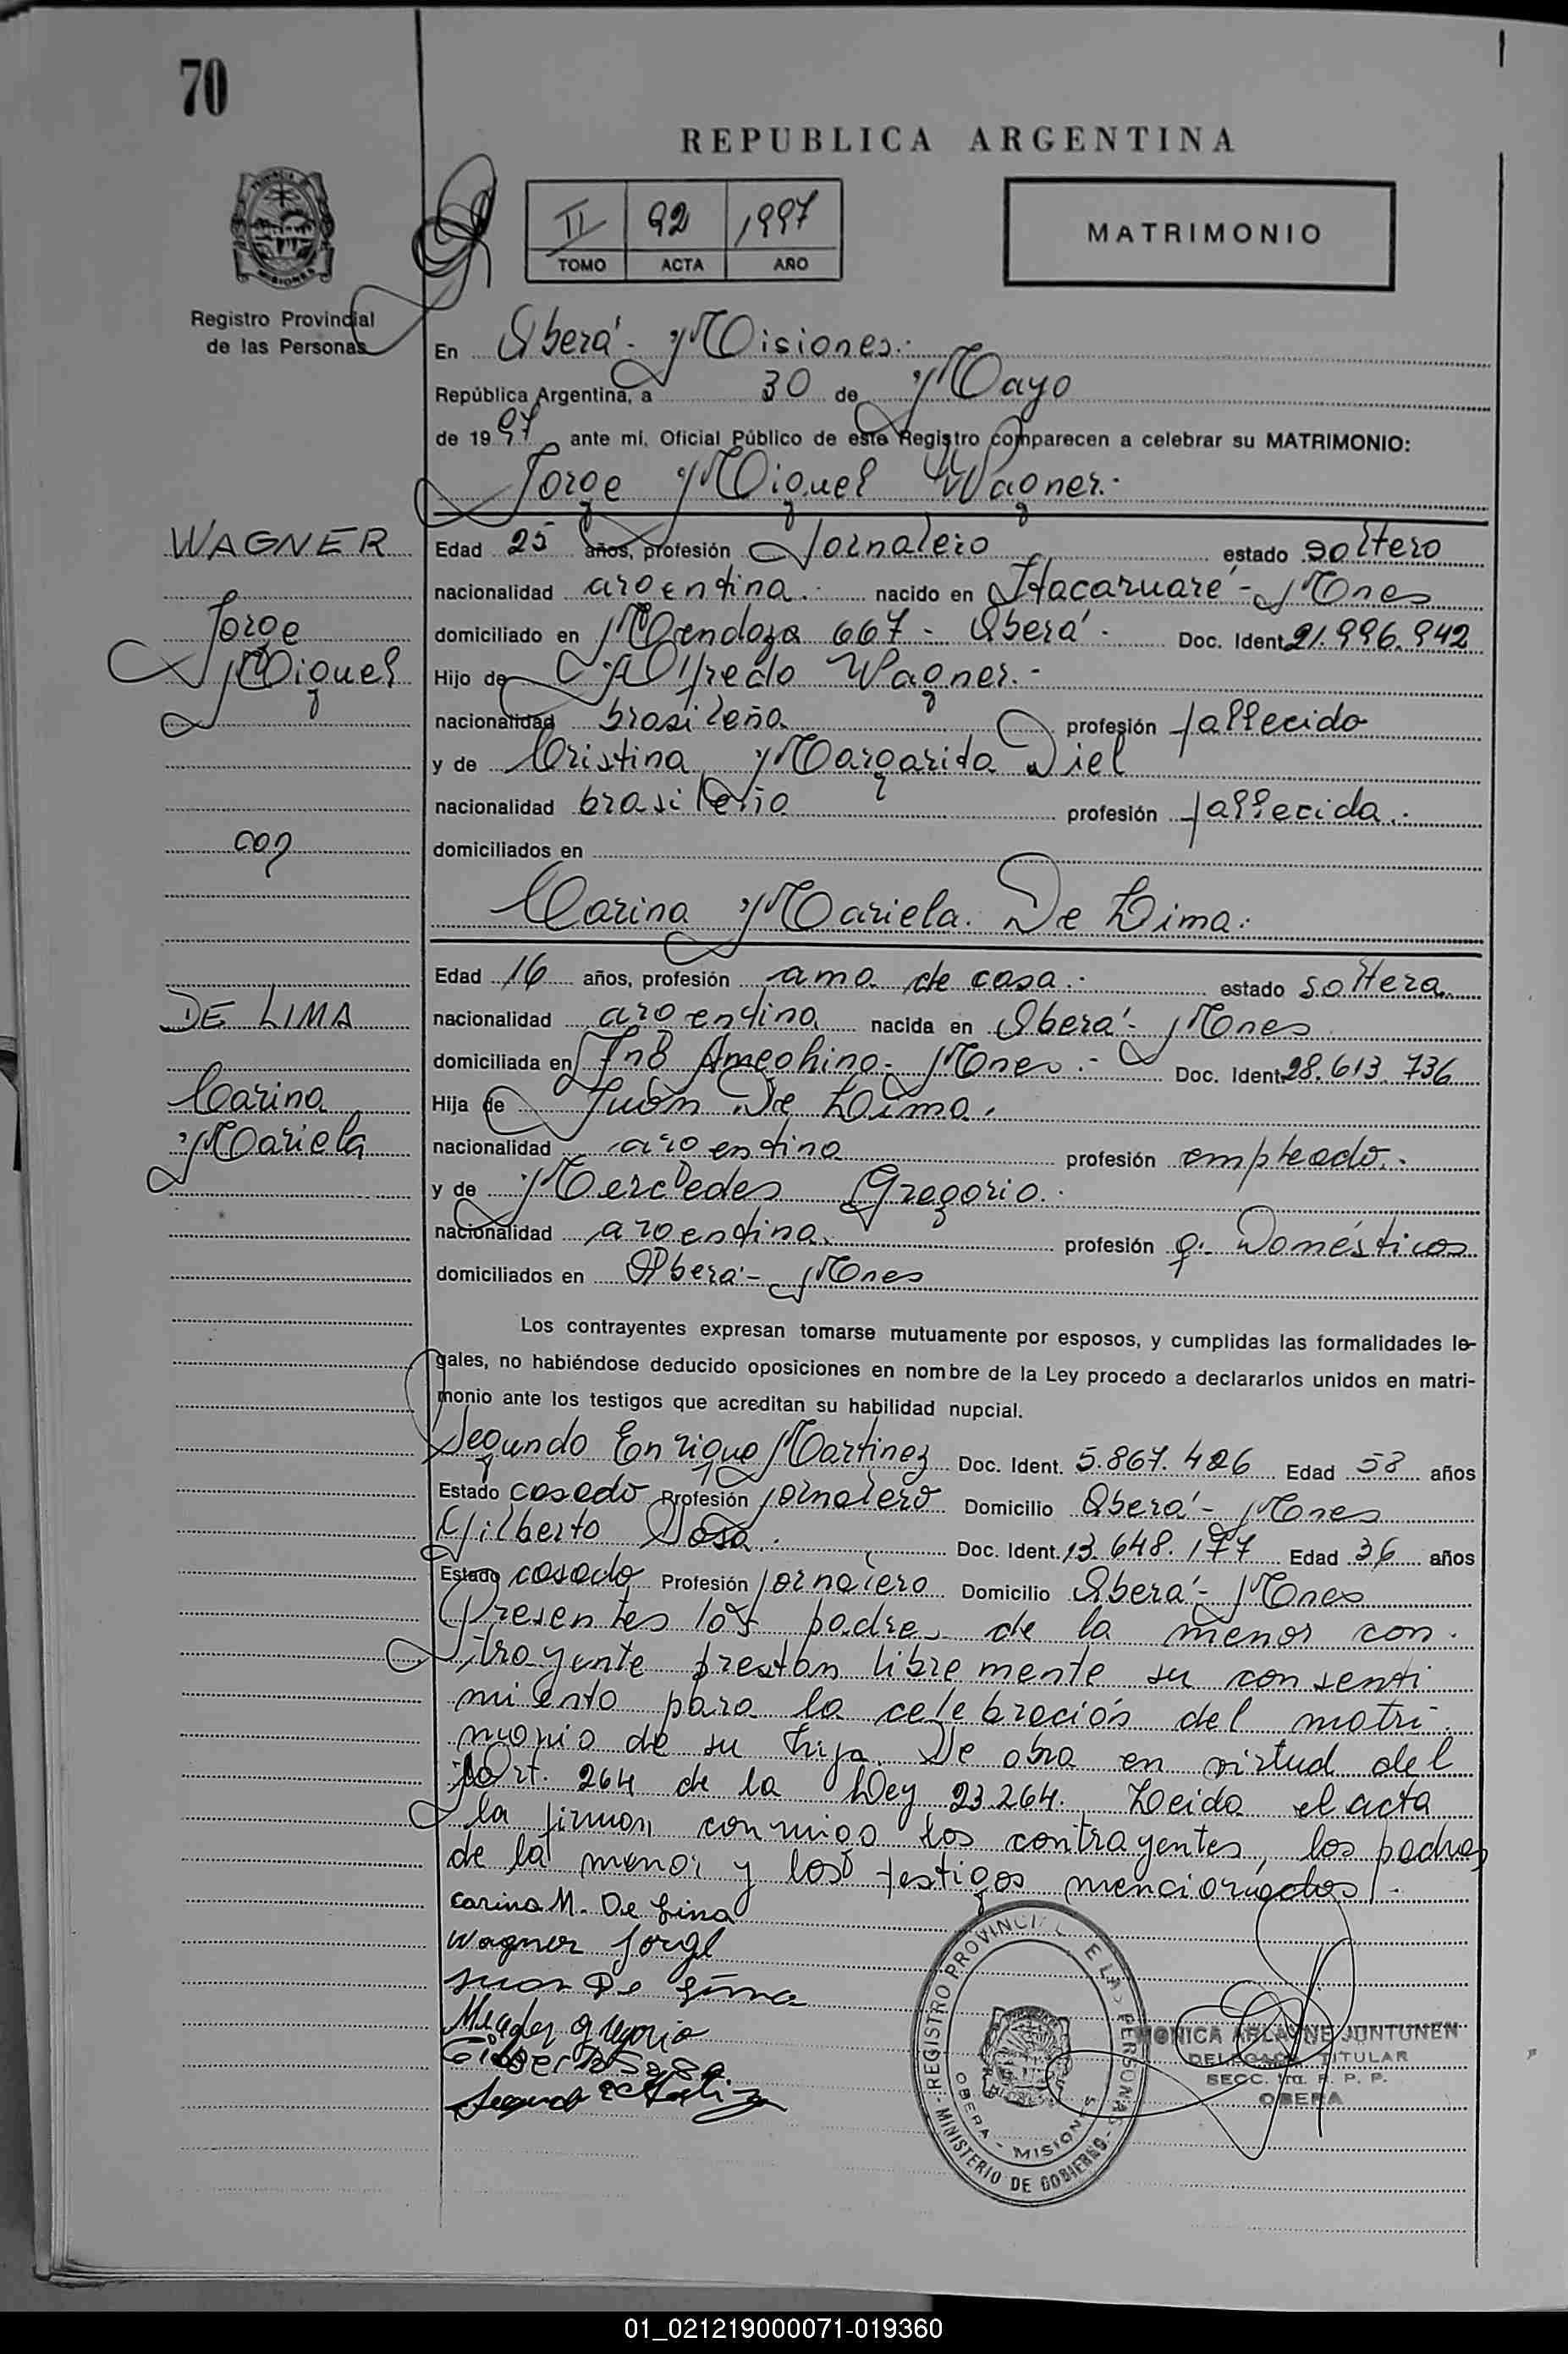 70
REPUBLICA ARGENTINA
II 92 1997
TOMO ACTA AÑO
MATRIMONIO
Registro Provincial
de las Personas
En Oberá - Misiones.-
República Argentina, a 30 de Mayo
de 1997, ante mí, Oficial Público de este Registro comparecen a celebrar su MATRIMONIO:
Jorge Miguel Wagner.-
WAGNER
Jorge
Miguel
Edad 25 años, profesión Jornalero estado soltero
nacionalidad argentina.- nacido en Itacaruaré - Mnes
domiciliado en Mendoza 667 - Oberá - Doc. Ident. 21.996.942
Hijo de Alfredo Wagner.-
nacionalidad brasileña profesión fallecido
y de Cristina Margarida Diel
nacionalidad brasileña profesión fallecida.-
con
domiciliados en
Carina Mariela De Lima.-
DE LIMA
Carina
Mariela
Edad 16 años, profesión ama de casa.- estado soltera
nacionalidad argentina nacida en Oberá - Mnes
domiciliada en Ameghino - Mnes.- Doc. Ident. 28.613.736
Hija de Juan De Lima.
nacionalidad argentina profesión empleado.-
y de Mercedes Gregorio.-
nacionalidad argentina profesión q. Domésticos
domiciliados en Oberá - Mnes
Los contrayentes expresan tomarse mutuamente por esposos, y cumplidas las formalidades le-
gales, no habiéndose deducido oposiciones en nombre de la Ley procedo a declararlos unidos en matri-
monio ante los testigos que acreditan su habilidad nupcial.
Segundo Enrique Martinez Doc. Ident. 5.867.426 Edad 58 años
Estado casado Profesión jornalero Domicilio Oberá - Mnes
Gilberto Sosa.- Doc. Ident. 13.648.177 Edad 36 años
Estado casado Profesión jornalero Domicilio Oberá - Mnes
Presentes los padres de la menor con-
trayente prestan libremente su consenti
miento para la celebración del matri-
monio de su hija. Se obra en virtud del
Art. 264 de la Ley 23.264. Leida el acta
la firman conmigo los contrayentes, los padres
de la menor y los testigos mencionados.-
Carina M. De Lima
Wagner Jorge
Juan De Lima
Gregorio
Gilberto Sosa
Segundo E Martinez
REGISTRO PROVINCIAL DE LAS PERSONAS
OBERA - MISIONES
MINISTERIO DE GOBIERNO
MONICA ARLAYNE JUNTUNEN
DELEGADA TITULAR
SECC. 1ra. R. P. P.
OBERA
01_021219000071-019360